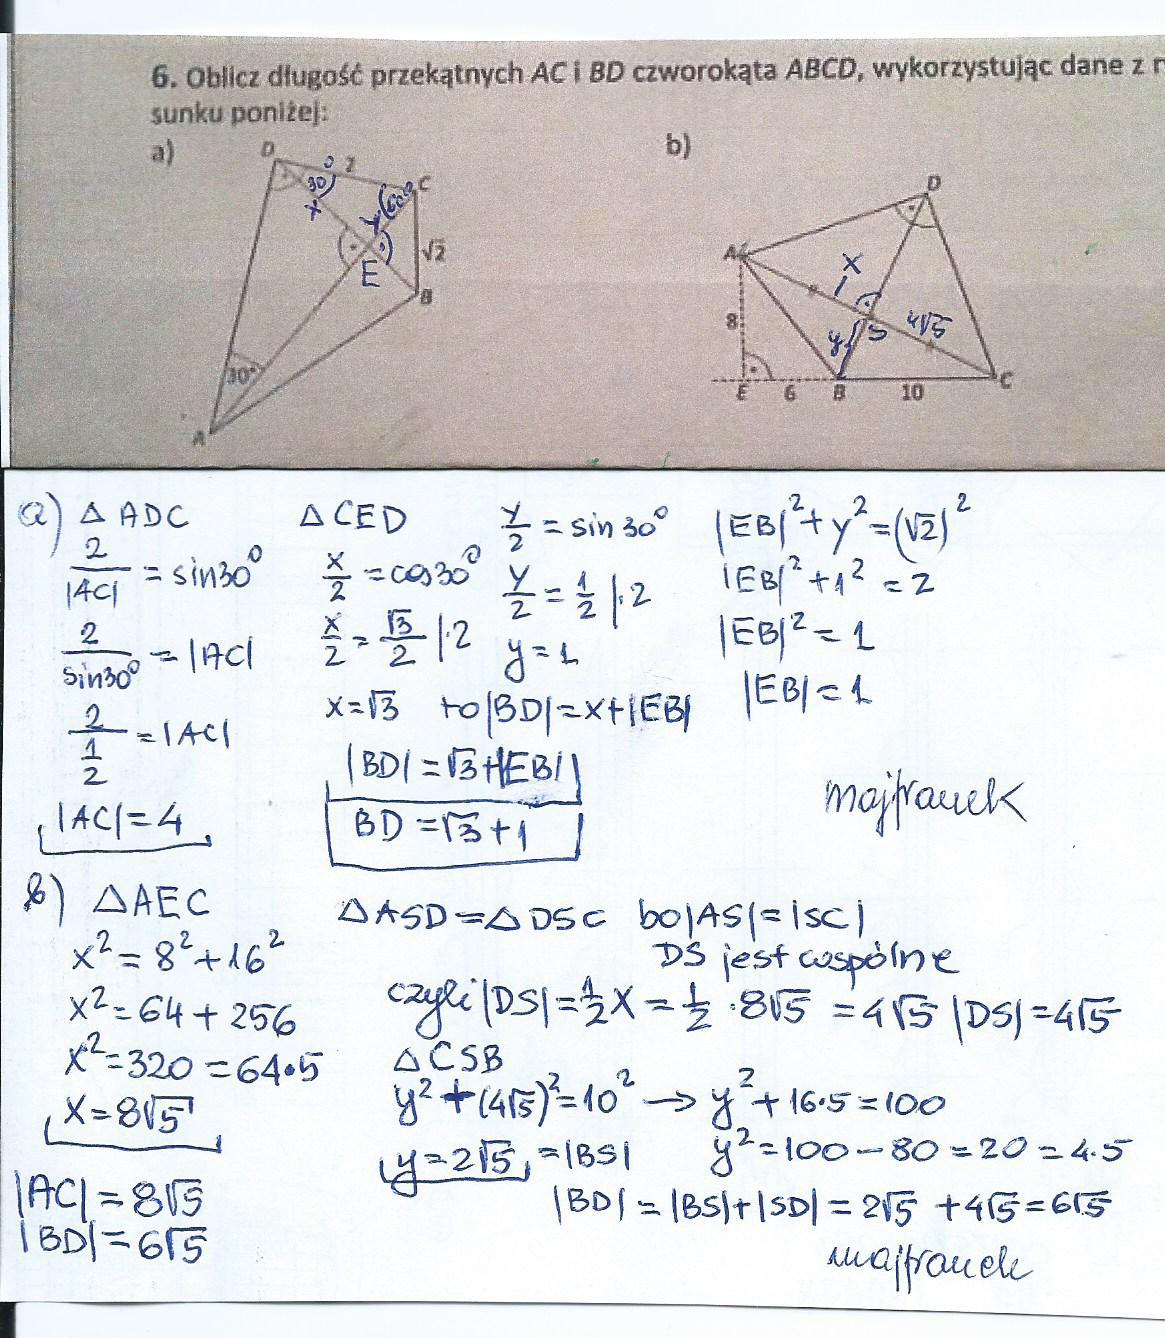 6. Oblicz długość przekątnych AC i BD czworokąta ABCD, wykorzystując dane z r
sunku poniżej:
a)
b)
D
2
30°
x
y
60°
C
√2
E
B
30°
A
D
A
x
8
y
S
4√5
E
6
B
10
C
a) △ ADC
2/|AC| = sin30°
2/sin30° = |AC|
2/(1/2) = |AC|
|AC| = 4
△ CED
x/2 = cos30°
x/2 = √3/2 |·2
x = √3
y/2 = sin 30°
y/2 = 1/2 |·2
y = 1
to |BD| = x + |EB|
|BD| = √3 + |EB|
BD = √3 + 1
|EB|² + y² = (√2)²
|EB|² + 1² = 2
|EB|² = 1
|EB| = 1
majfranek
b) △AEC
x² = 8² + 16²
x² = 64 + 256
x² = 320 = 64·5
x = 8√5
|AC| = 8√5
|BD| = 6√5
△ ASD = △ DSC bo |AS| = |SC|
DS jest wspólne
czyli |DS| = ½x = ½ · 8√5 = 4√5 |DS| = 4√5
△ CSB
y² + (4√5)² = 10² → y² + 16·5 = 100
y² = 100 - 80 = 20 = 4·5
y = 2√5 = |BS|
|BD| = |BS| + |SD| = 2√5 + 4√5 = 6√5
majfranek